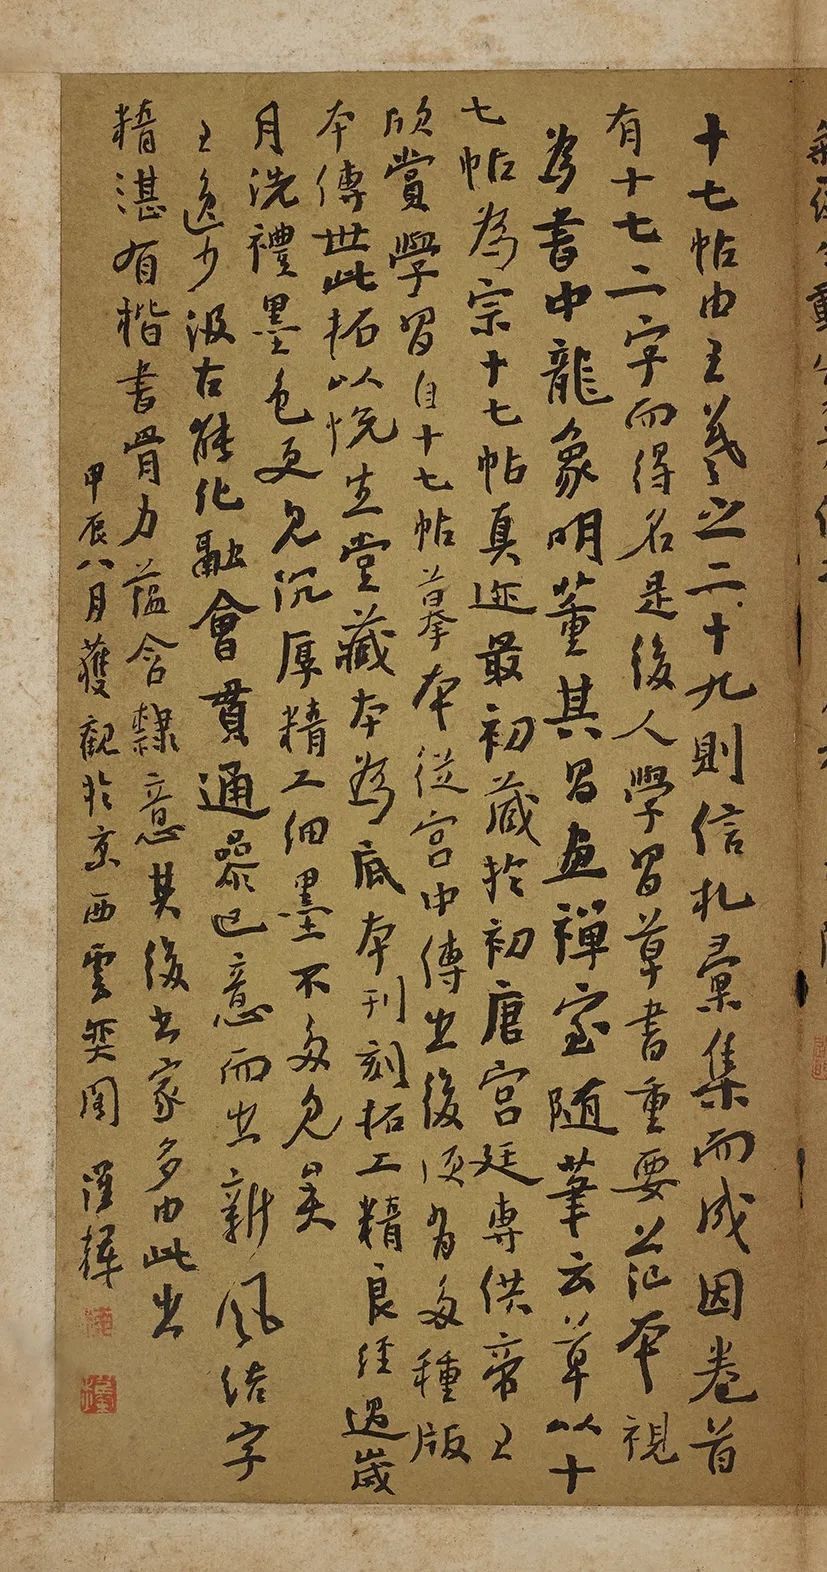 十七帖由王羲之二十九則信札彙集而成因卷首
有十七二字而得名是後人學習草書重要范本視
為書中龍象明董其昌畫禪室隨筆云草以十
七帖為宗十七帖真迹最初藏於初唐宮廷專供帝王
欣賞學習自十七帖摹本從宮中傳出後便有多種版
本傳世此拓以悅生堂藏本為底本刊刻拓工精良經過歲
月洗禮墨色更見沉厚精工細墨不多見矣
王逸少汲古能化融會貫通參己意而出新風結字
精湛有楷書骨力蘊含隸意其後書家多由此出
甲辰八月獲觀於京西雲奕閣